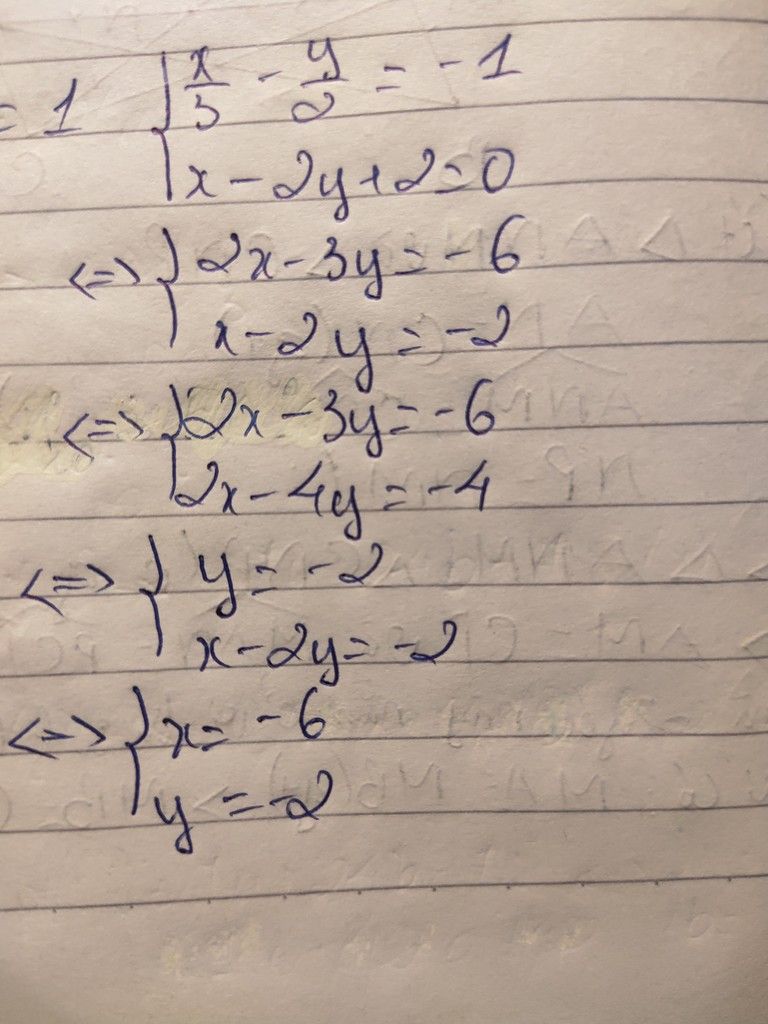 = 1 { x/3 - y/2 = -1
x - 2y + 2 = 0
<=> { 2x - 3y = -6
x - 2y = -2
<=> { 2x - 3y = -6
2x - 4y = -4
<=> { y = -2
x - 2y = -2
<=> { x = -6
y = -2